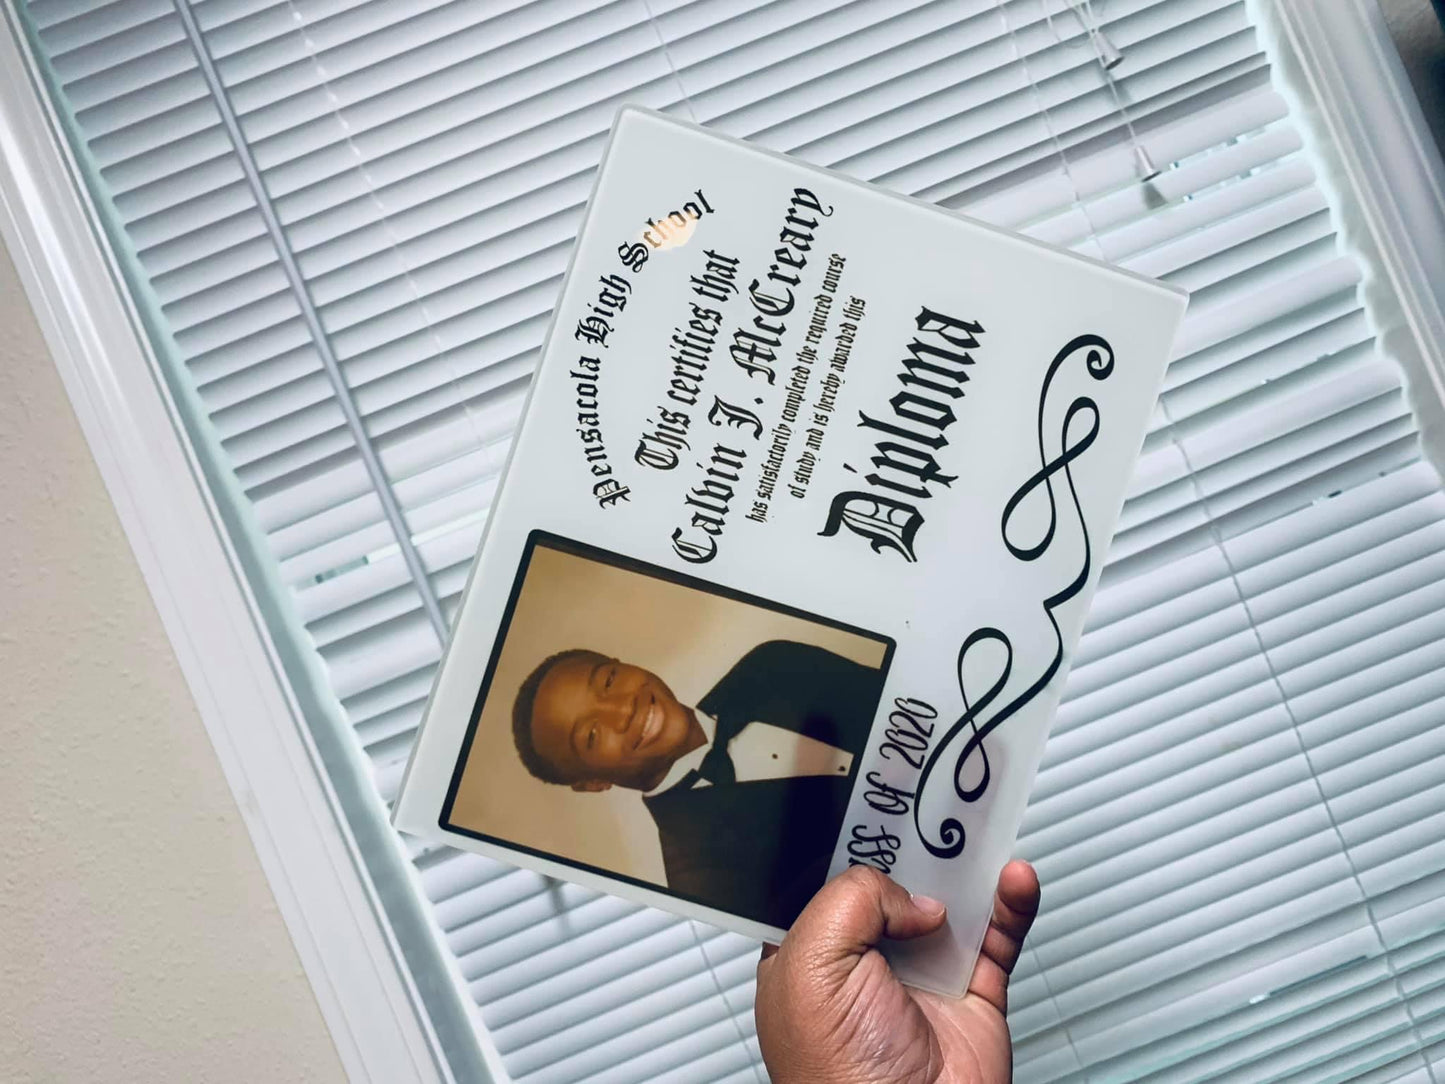 Pensacola High School
This certifies that
Calvin J. McCreary
has satisfactorily completed the required course
of study and is hereby awarded this
Diploma
of 2026